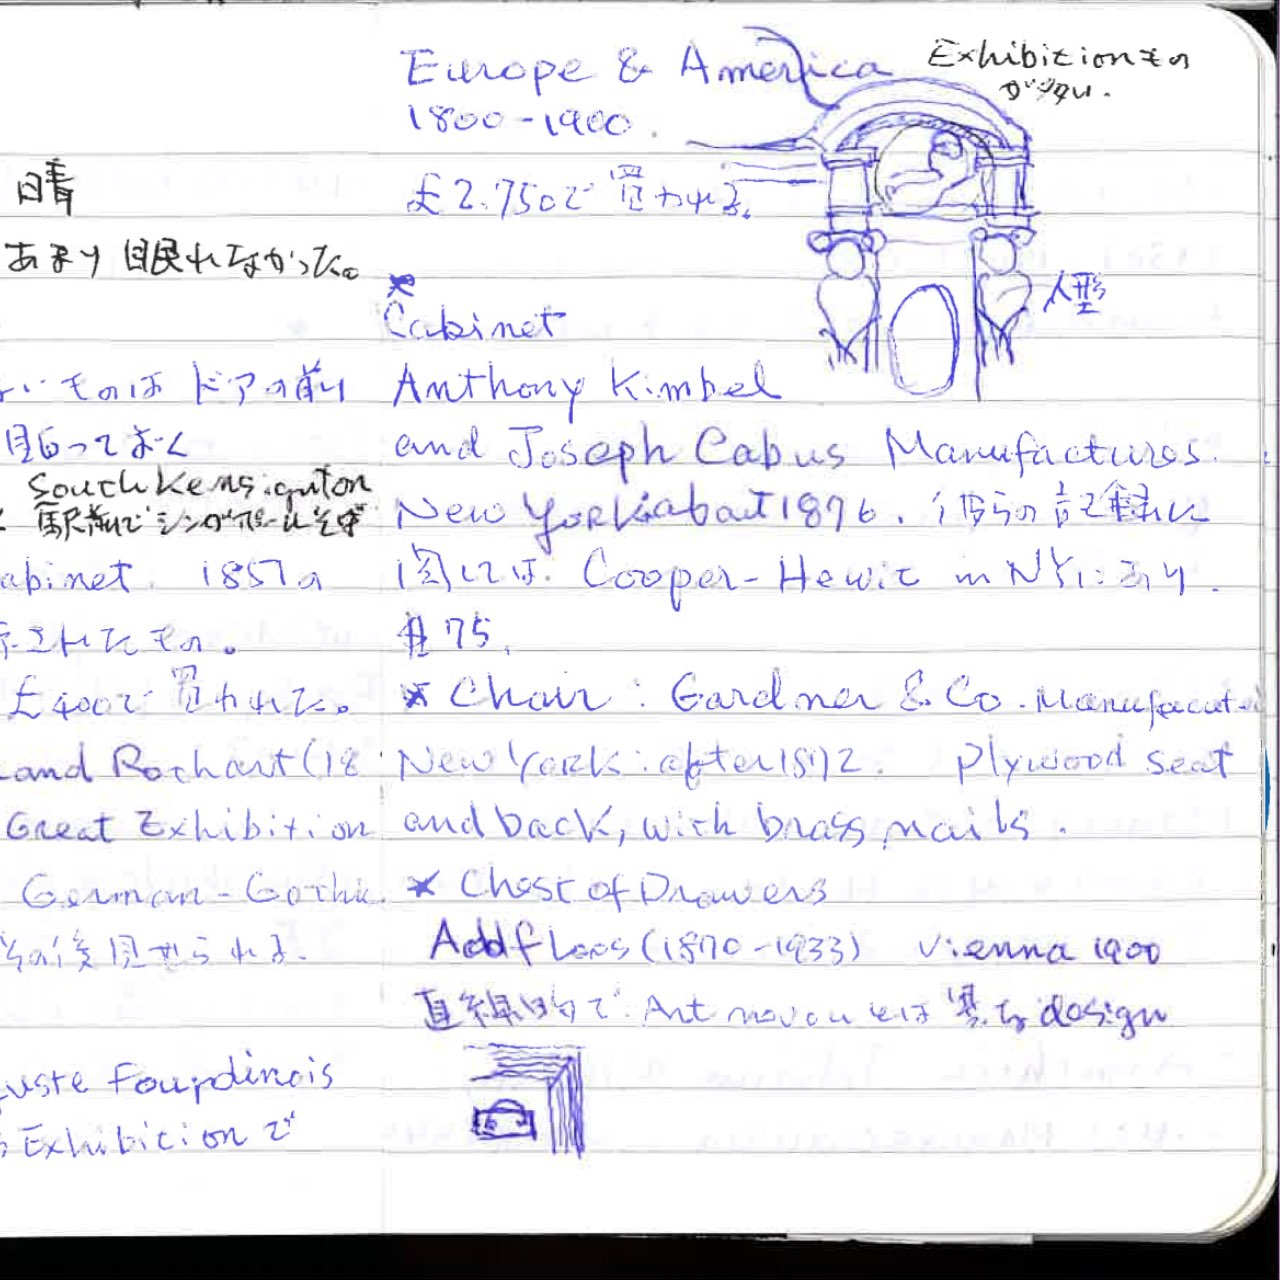 晴
あまり眠れなかった。
いものはドアの前
貼っておく
South Kensignton
駅前でシンガポールそば
abinet. 1851の
示されたもの。
£400で買われた。
and Rochart (18
Great Exhibition
German-Gothic
その後見せられる.
uste Fourdinois
Exhibitionで
Europe & America
Exhibitionもの
が多い.
1800-1900.
£2.750で買われる。
人型
Cabinet
Anthony Kimbel
and Joseph Cabus Manufactures.
New York: about 1876. 彼らの記録に
関しては. Cooper-Hewit in NYにあり.
#75.
* Chair : Gardner & Co. Manufacuted
New York : after 1872. Plywood seat
and back, with brass nails.
* Chest of Drawers
Adolf Loos (1870-1933) Vienna 1900
直線的で Art nouvouとは異なるdesign